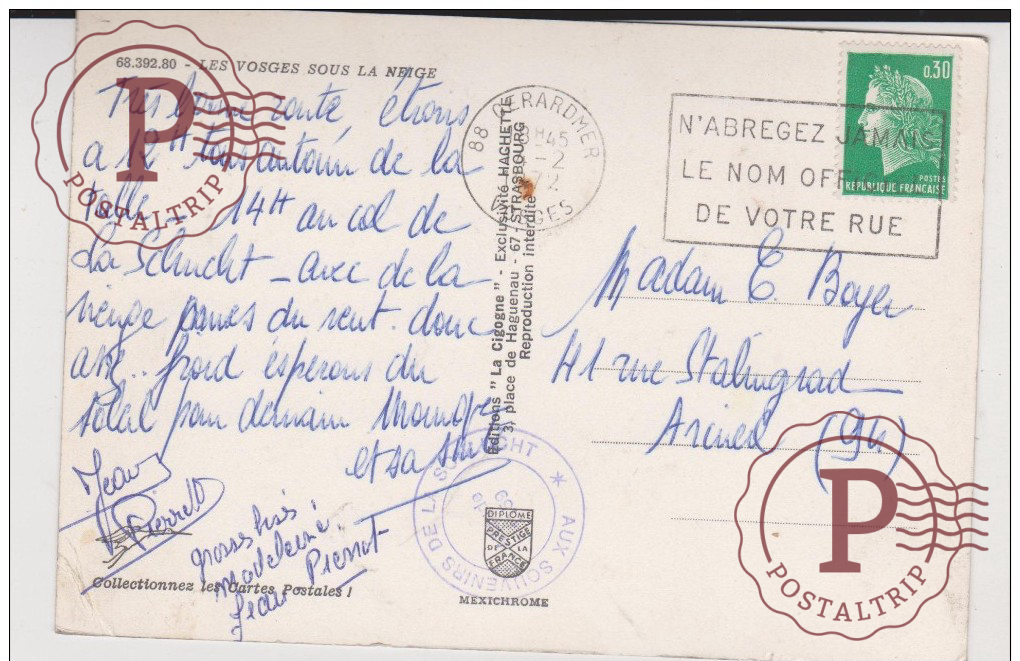 68.392.80 - LES VOSGES SOUS LA NEIGE
Très bonne route, étions
a 12H tour autour de la
14H au col de
La Schlucht - avec de la
neige du vent. donc
froid esperons du
soleil pour demain
et sa
Jean
Pierrot
grosses bises
Madeleine
Jean Pierrot
Collectionnez les Cartes Postales !
88 GERARDMER
H45
-2
72
VOSGES
N'ABREGEZ JAMAIS
LE NOM OFFICIEL
DE VOTRE RUE
0,30
POSTES
REPUBLIQUE FRANÇAISE
Editions " La Cigogne " - Exclusivité HACHETTE
3, place de Haguenau - 67 - STRASBOURG
Reproduction interdite
Madame E. Boyer
41 rue Stalingrad
Arcueil (94)
AUX SOUVENIRS DE LA SCHLUCHT *
DIPLOME
PRESTIGE
DE LA
FRANCE
MEXICHROME
P
POSTALTRIP
P
POSTALTRIP